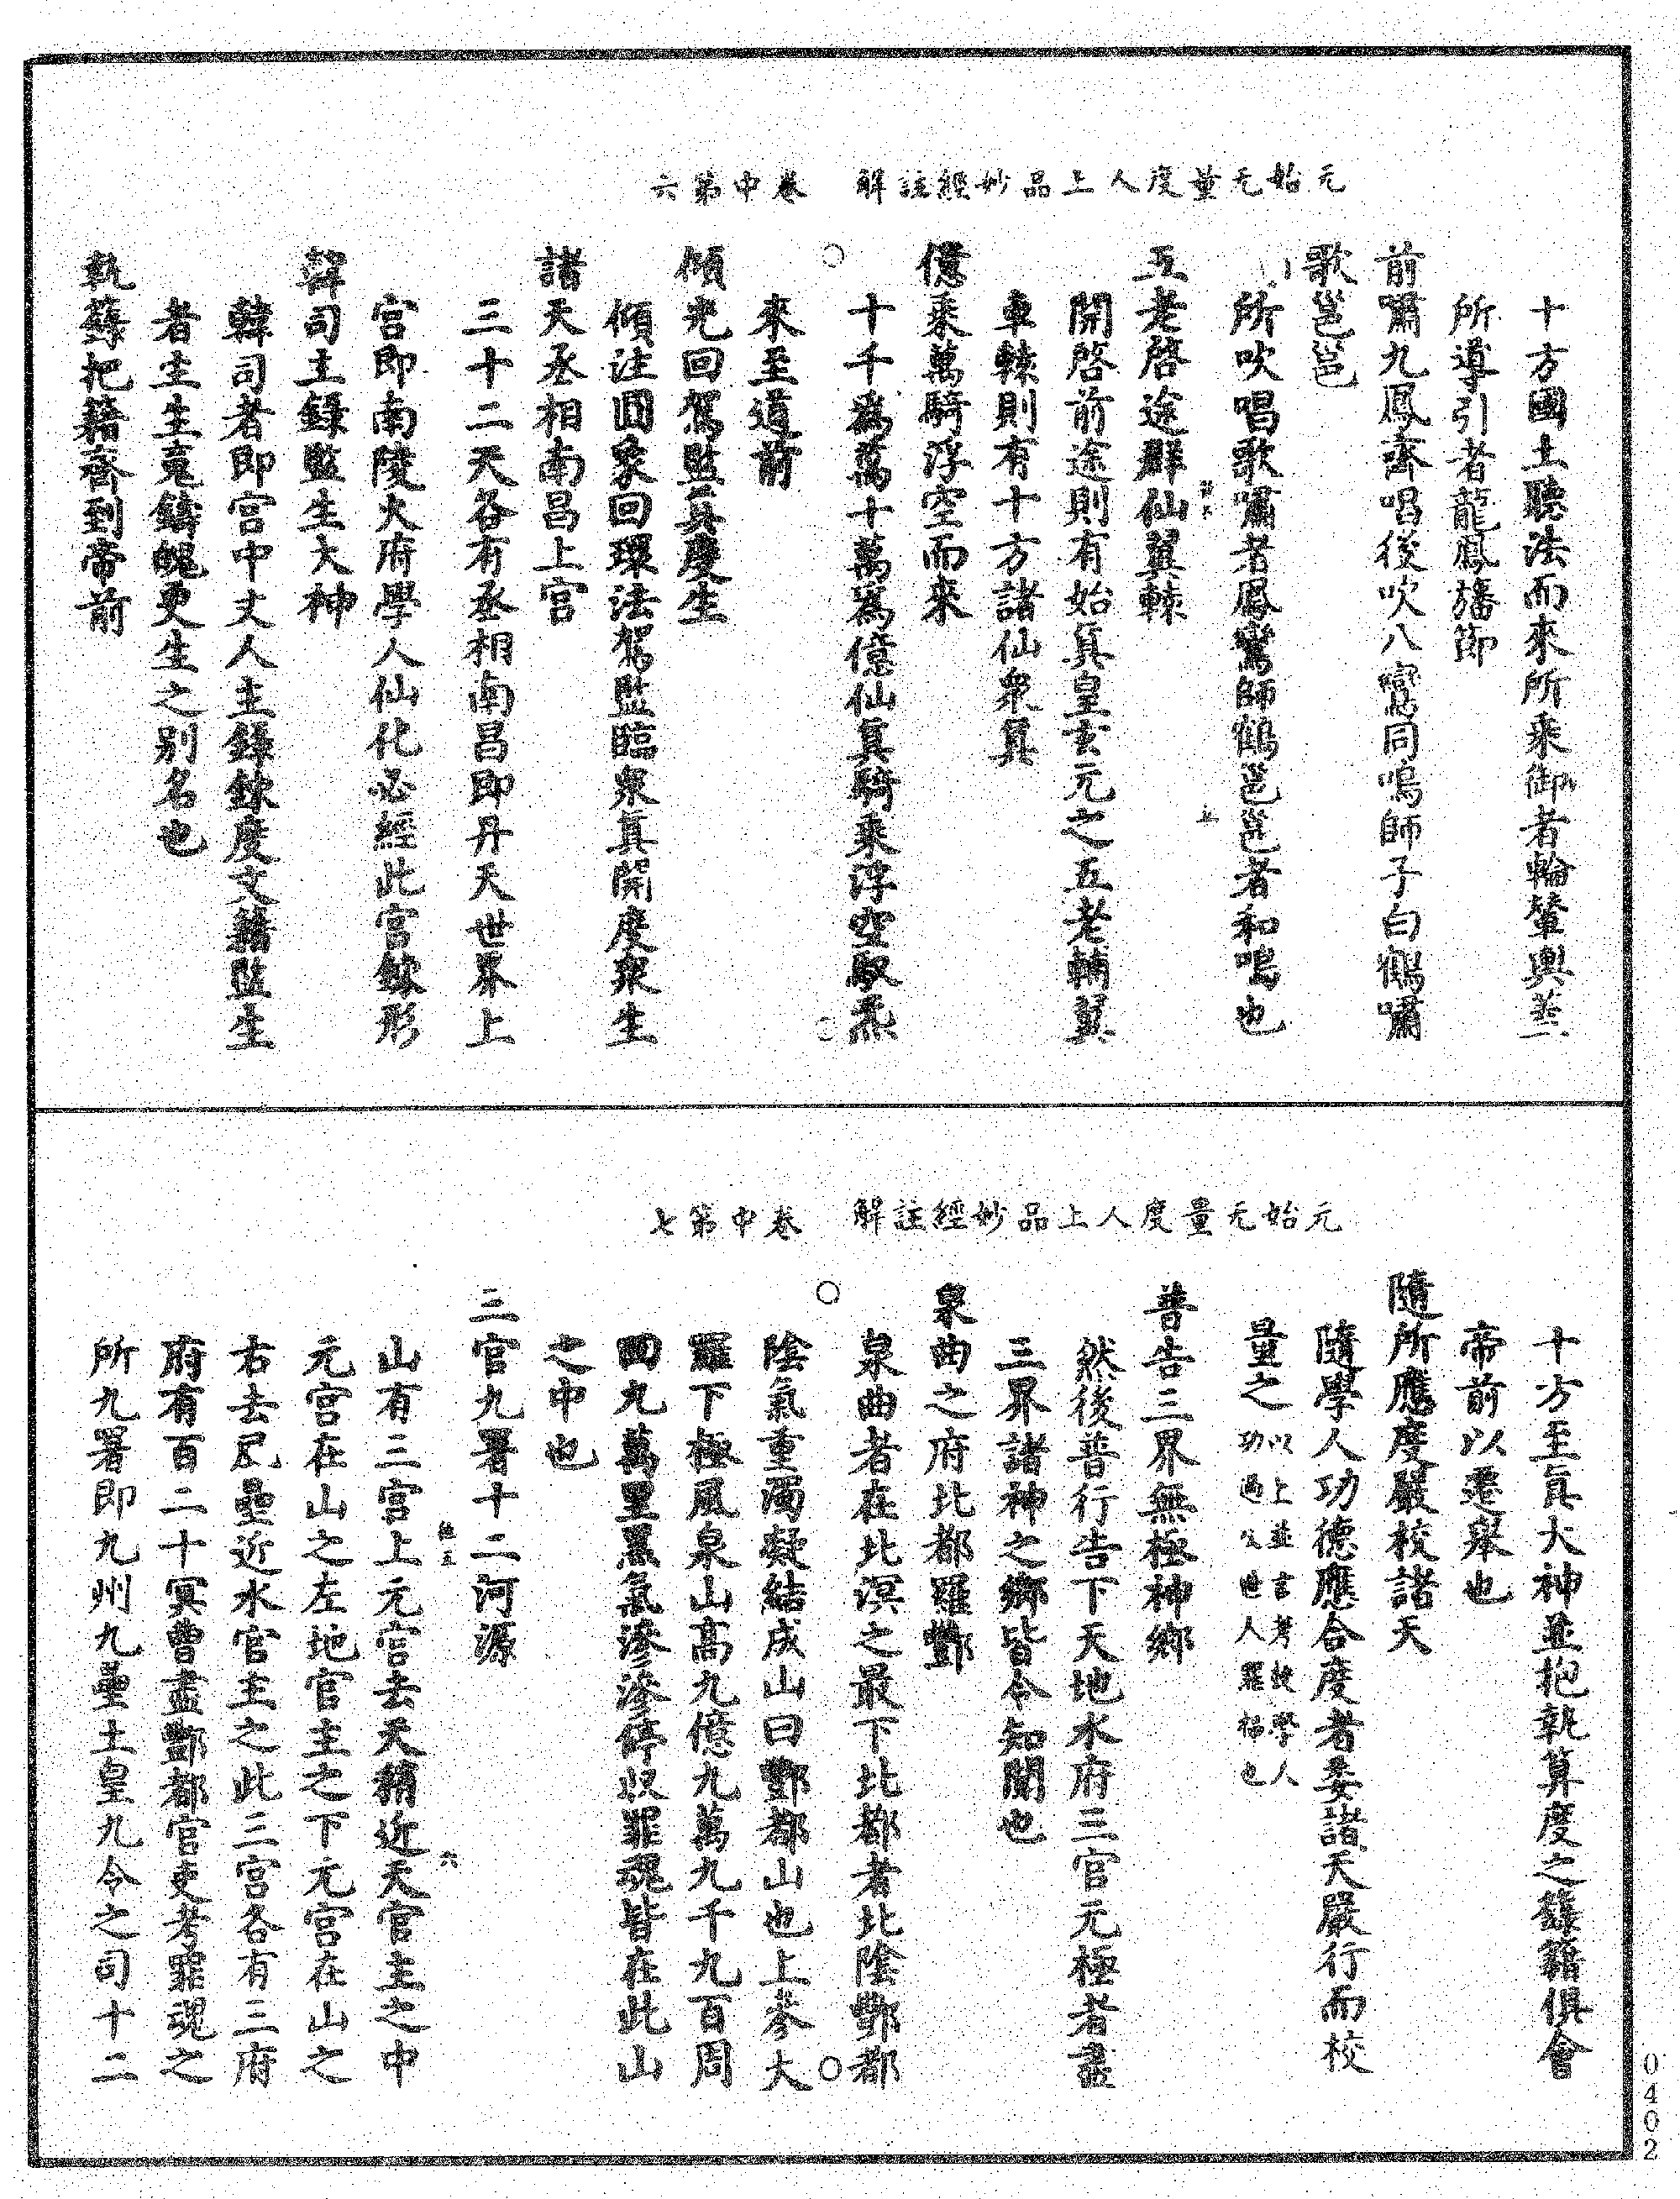 元始无量度人上品妙經註解　卷中第六
十方國土聽法而來所乘御者輪輦輿蓋
所導引者龍鳳旛節
前嘯九鳳齊唱後吹八鸞同鳴師子白鶴嘯
歌邕邕
所吹唱歌嘯者鳳鸞師鶴邕邕者和鳴也
五老啓途群仙翼轅
開啓前途則有始真皇玄元之五老輔翼
車轅則有十方諸仙衆真
億乘萬騎浮空而來
十千為萬十萬為億仙真騎乘浮空馭炁
來至道前
傾光回駕監真度生
傾注圓象回環法駕監臨衆真開度衆生
諸天丞相南昌上宮
三十二天各有丞相南昌即丹天世界上
宮即南陵火府學人仙化必經此宮鍊形
韓司主錄監生大神
韓司者即宮中丈人主錄鍊度文籍監生
者主生冤鑄魄更生之別名也
執籙把籍齊到帝前
元始无量度人上品妙經註解　卷中第七
十方至真大神並抱執算度之籙籍俱會
帝前以遷舉也
隨所應度嚴校諸天
隨學人功德應合度者委諸天嚴行而校
量之以上並言考校學人功過公世人罪福也
普告三界無極神鄉
然後普行告下天地水府三官元極者盡
三界諸神之鄉皆令知聞也
泉曲之府北都羅酆
泉曲者在北溟之最下北都者北陰酆都
陰氣重濁凝結成山曰酆都山也上參大
羅下極風泉山高九億九萬九千九百周
回九萬里黑氣滲滲停収罪魂皆在此山
之中也
三官九署十二河源
山有三宮上元宮去天稍近天官主之中
元宮在山之左地官主之下元宮在山之
右去風壘近水官主之此三宮各有三府
府有百二十冥曹盡酆都官吏考罪魂之
所九署即九州九壘土皇九令之司十二
0402